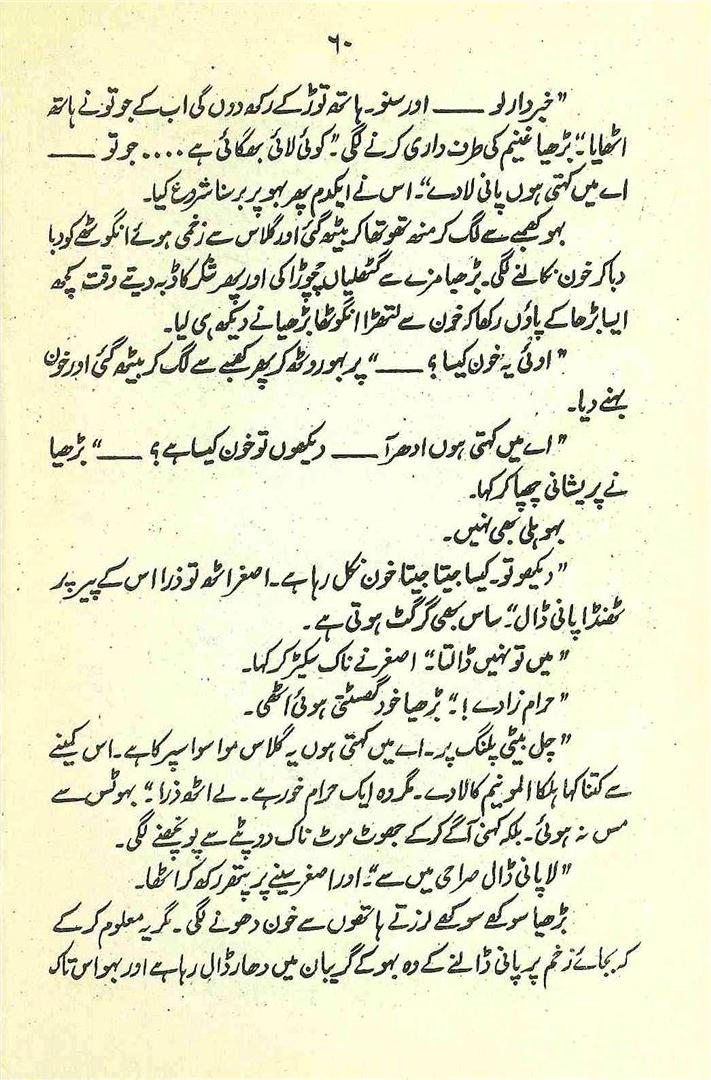 ۶۰
"خبردار لو —— اور سنو۔ ہاتھ توڑ کے رکھ دوں گی اب کے جو تو نے ہاتھ
اٹھایا۔" بڑھیا غنیم کی طرف داری کرنے لگی۔ "کوئی لائی بھگائی ہے .... جو تو ——
اے میں کہتی ہوں پانی لا دے"۔ اس نے ایکدم پھر بہو پر برسنا شروع کیا۔
بہو کھمبے سے لگ کر منہ تھوتھا کر بیٹھ گئی اور گلاس سے زخمی ہوئے انگوٹھے کو دبا
دبا کر خون نکالنے لگی۔ بڑھیا مزے سے گٹھلیاں چچوڑا کی اور پھر شکر کا ڈبہ دیتے وقت کچھ
ایسا بڑھا کے پاؤں رکھا کہ خون سے لتھڑا انگوٹھا بڑھیا نے دیکھ ہی لیا۔
"اوئی یہ خون کیسا؟ ——" پر بہو روٹھ کر پھر کھمبے سے لگ کر بیٹھ گئی اور خون
بہنے دیا۔
"اے میں کہتی ہوں ادھر آ —— دیکھوں تو خون کیسا ہے؟ ——" بڑھیا
نے پریشانی چھپا کر کہا۔
بہو ہلی بھی نہیں۔
"دیکھو تو۔ کیسا جیتا جیتا خون نکل رہا ہے۔ اصغر اٹھ تو ذرا اس کے پیر پر
ٹھنڈا پانی ڈال"۔ ساس بھی گرگٹ ہوتی ہے۔
"میں تو نہیں ڈالتا۔" اصغر نے ناک سکیڑ کر کہا۔
"حرام زادے!۔" بڑھیا خود گھسٹتی ہوئی اٹھی۔
"چل بیٹی پلنگ پر۔ اے میں کہتی ہوں یہ گلاس موا سوا سیر کا ہے۔ اس کمینے
سے کتنا کہا ہلکا المونیم کا لادے۔ مگر وہ ایک حرام خور ہے۔ لے اٹھ ذرا۔" بہو ٹس سے
مس نہ ہوئی۔ بلکہ کہنی آگے کر کے جھوٹ موٹ ناک دوپٹے سے پونچھنے لگی۔
"لا پانی ڈال صراحی میں سے"۔ اور اصغر سینے پر پتھر رکھ کر اٹھا۔
بڑھیا سوکھے سوکھے لرزتے ہاتھوں سے خون دھونے لگی۔ مگر یہ معلوم کر کے
کہ بجائے زخم پر پانی ڈالنے کے وہ بہو کے گریبان میں دھار ڈال رہا ہے اور بہو اس تاک